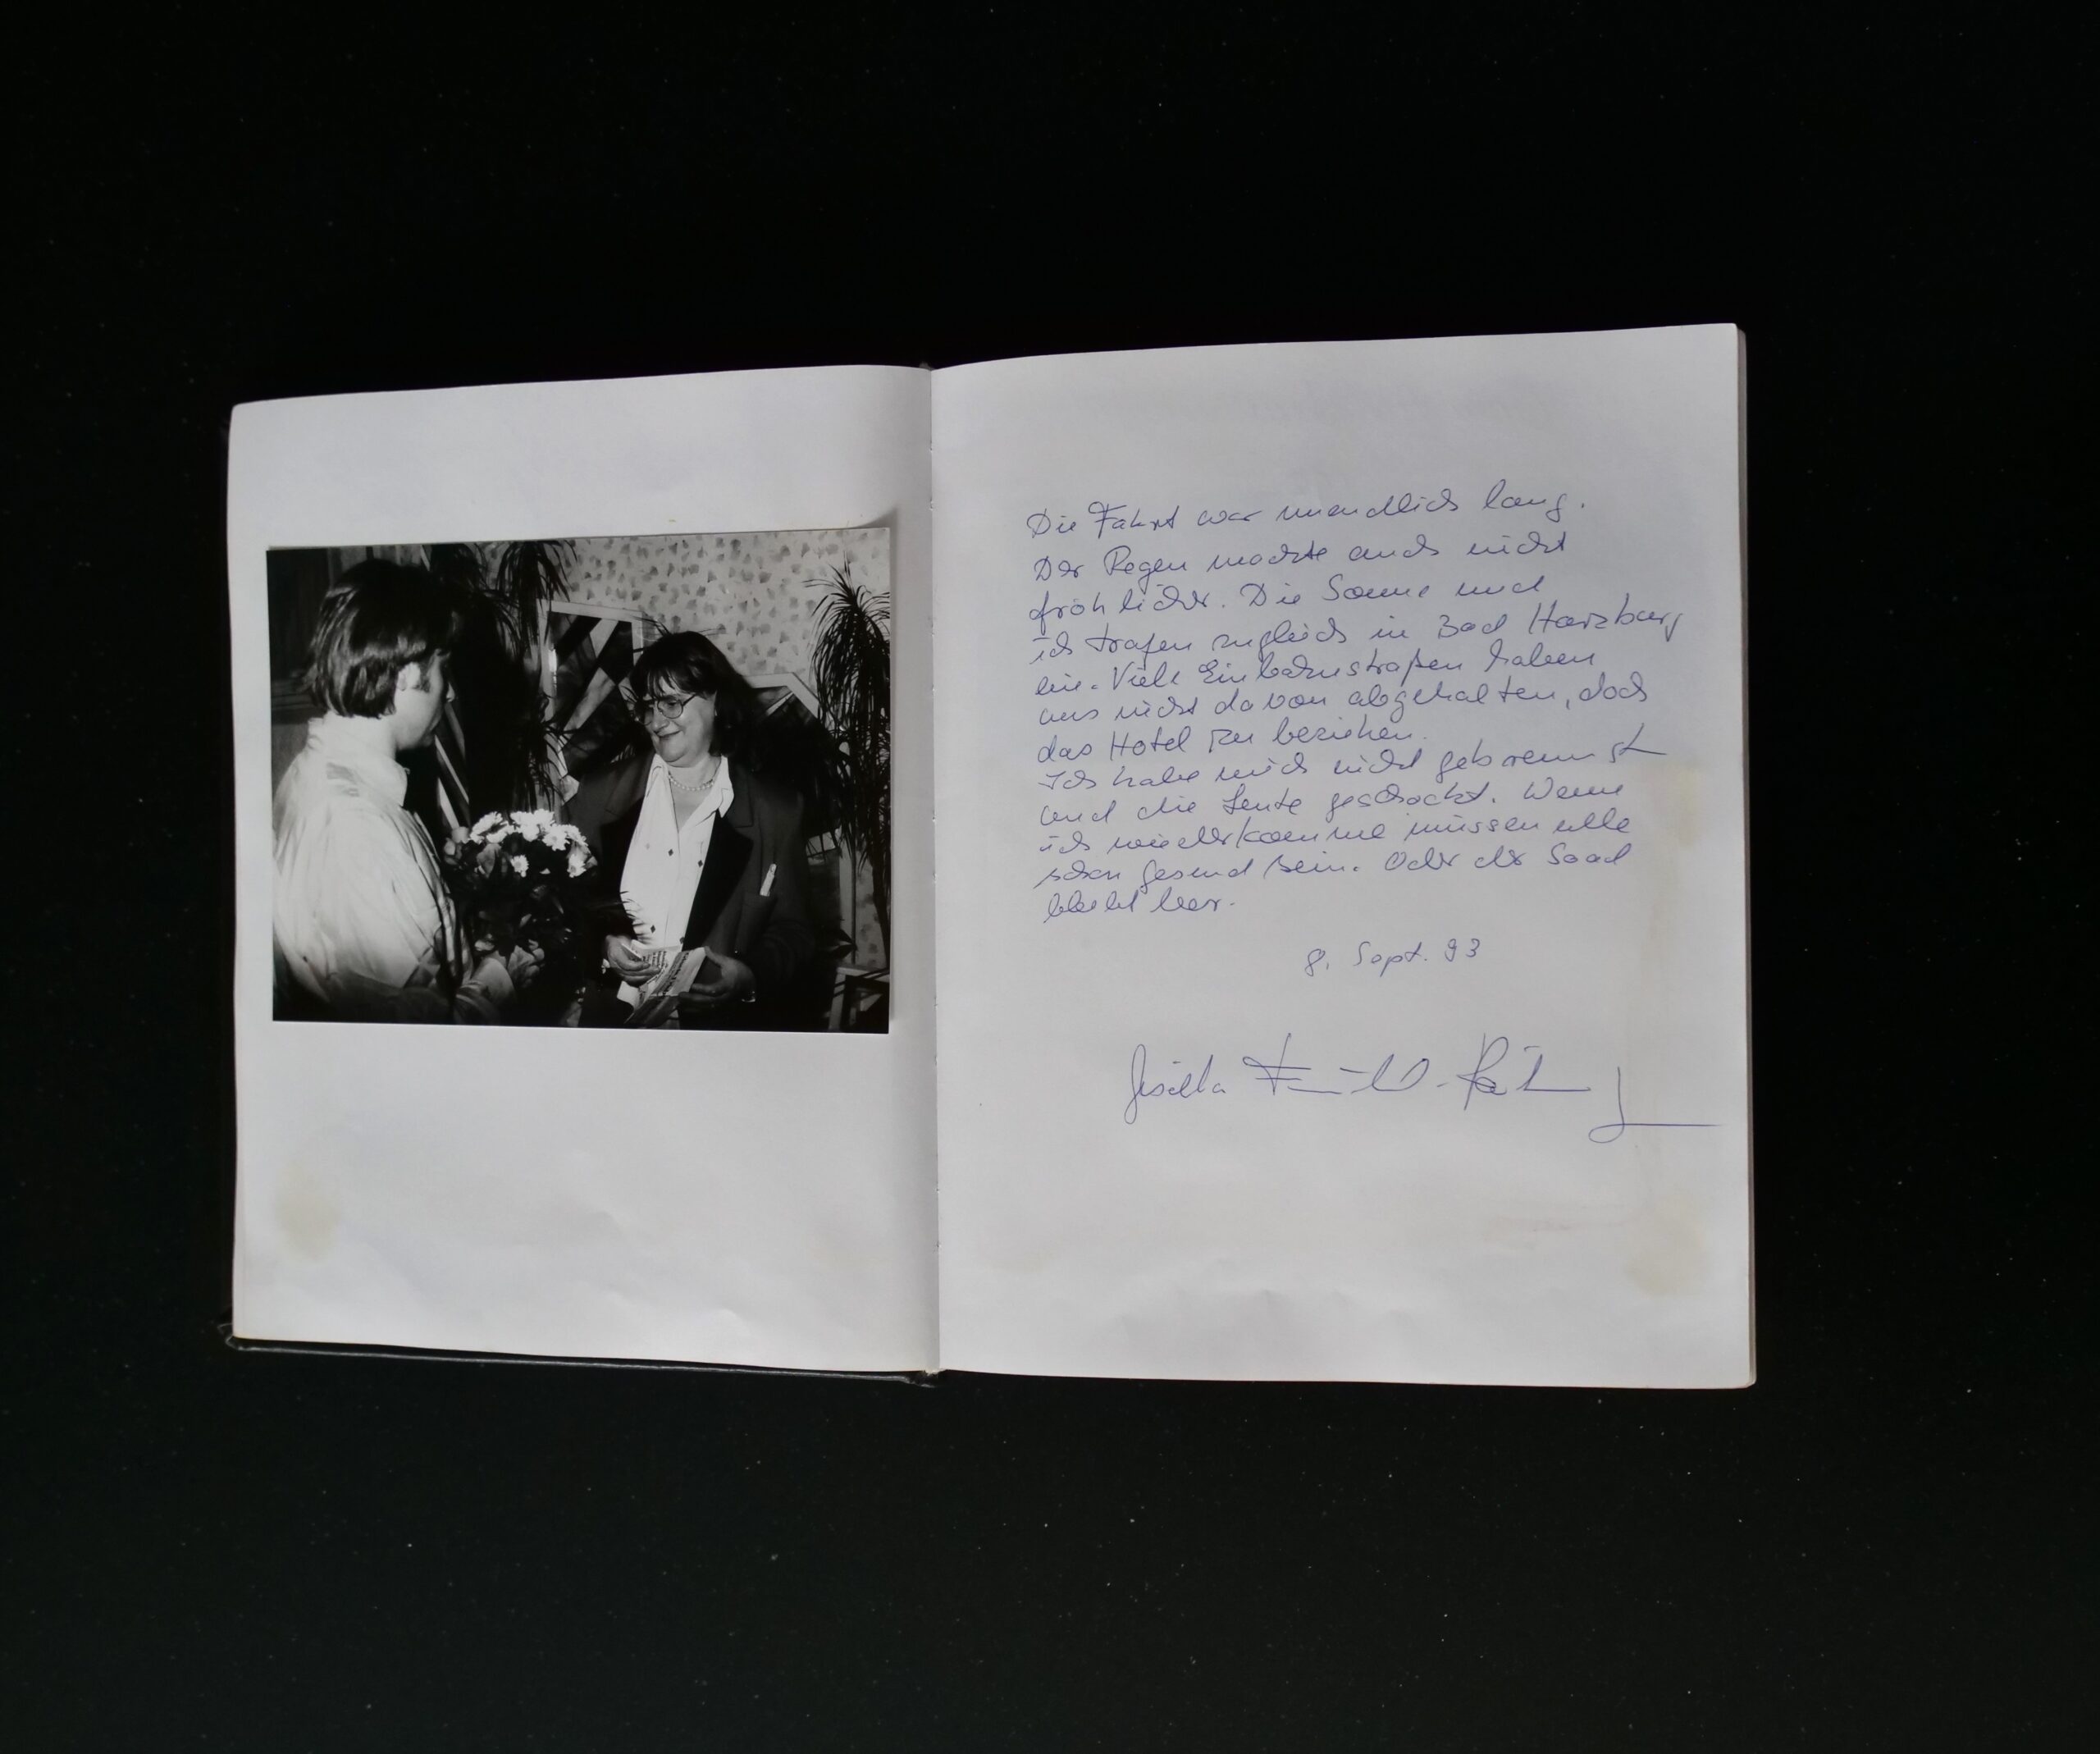 Die Fahrt war unendlich lang.
Der Regen machte auch nicht
fröhlicher. Die Sonne und
ich trafen zugleich in Bad Harzburg
ein. Viele Einbahnstraßen haben
uns nicht davon abgehalten, doch
das Hotel zu beziehen.
Ich habe mich nicht gebremst
und die Leute geschockt. Wenn
ich wiederkomme müssen alle
schon gesund sein. Oder der Saal
bleibt leer.
8. Sept. 93
Gisella